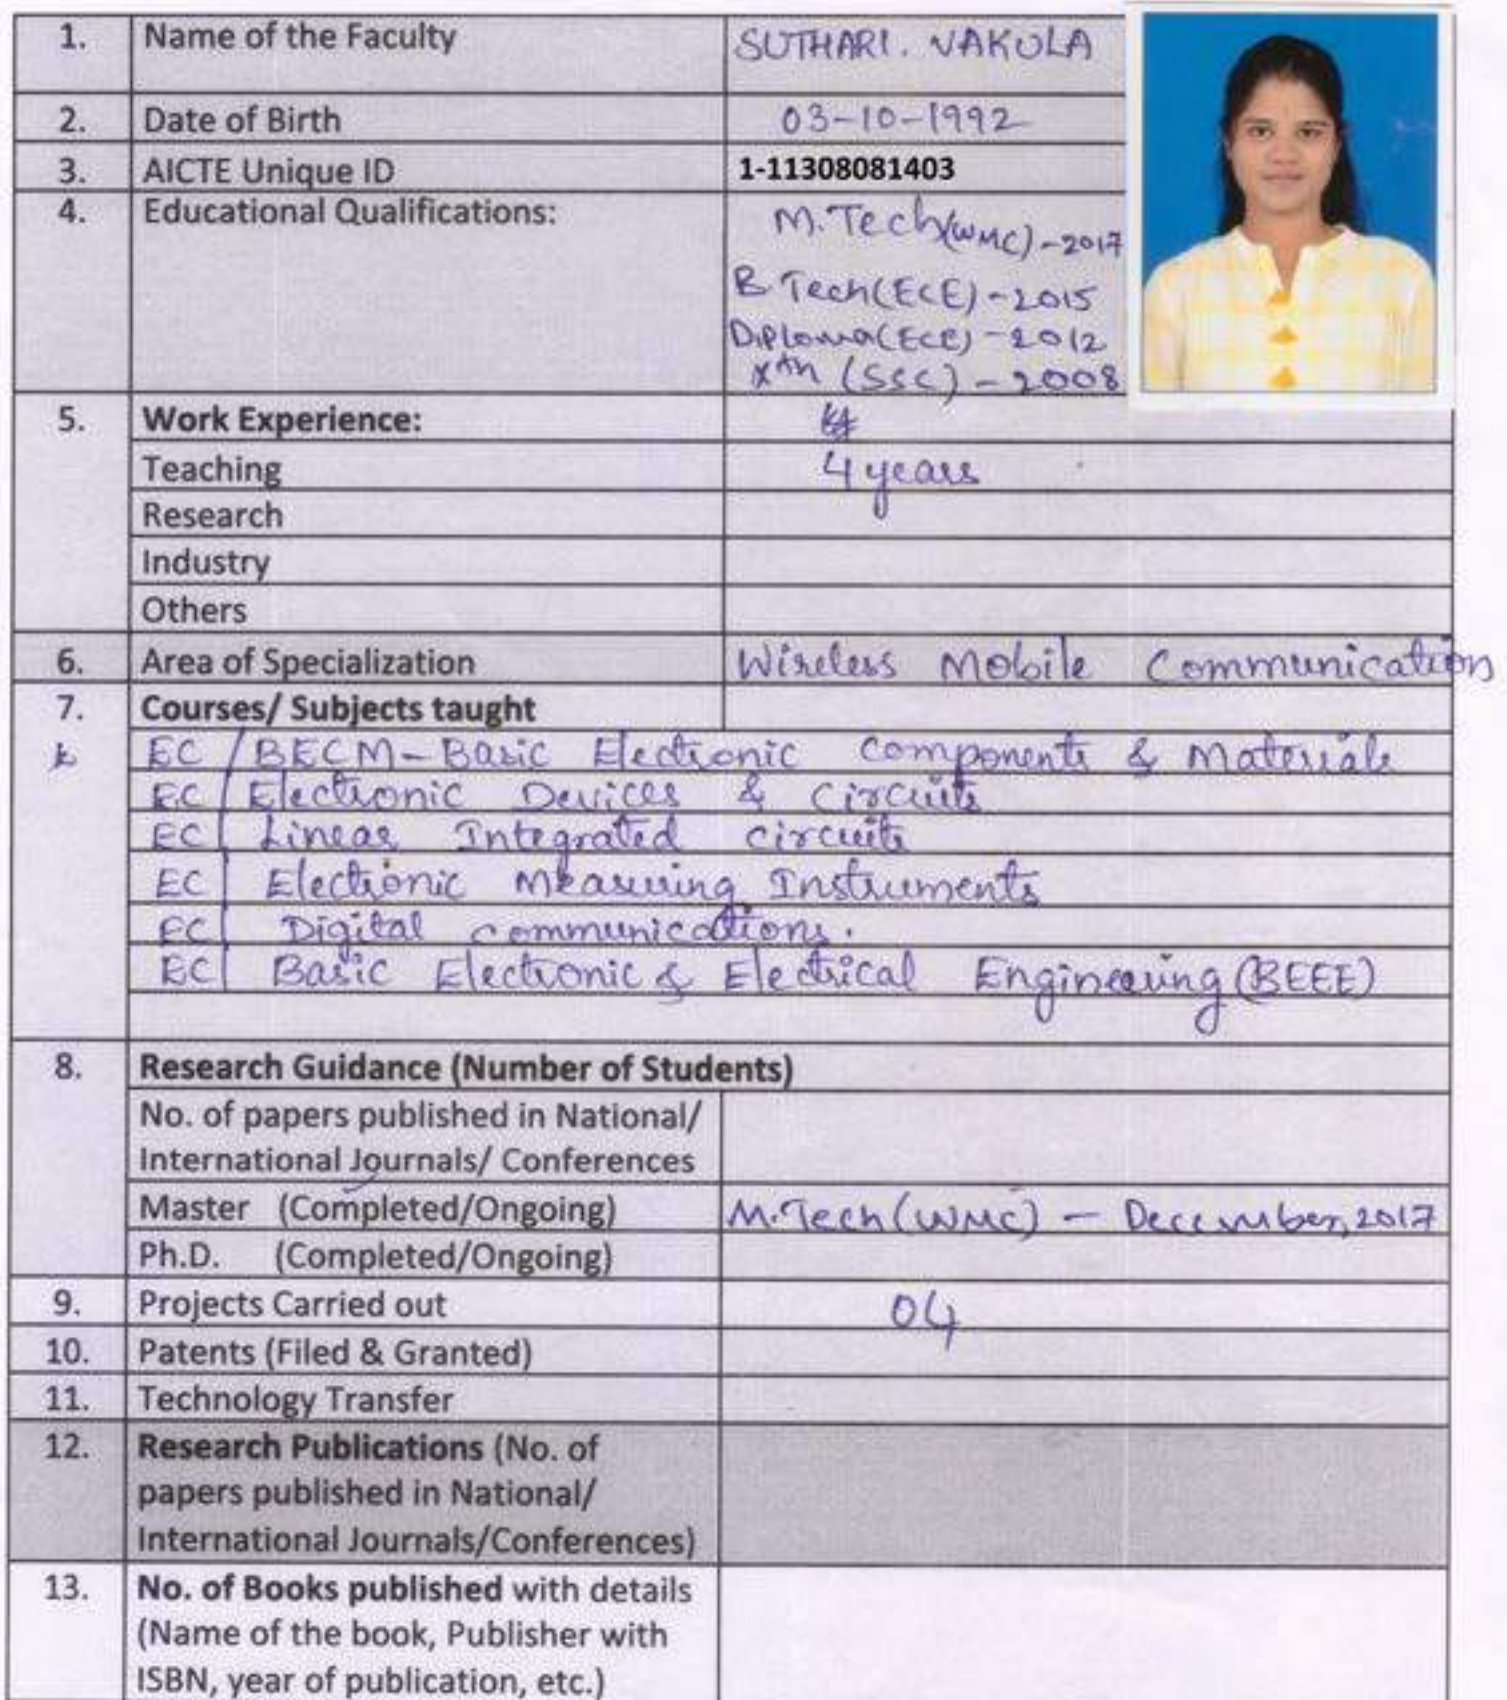 1. Name of the Faculty SUTHARI. VAKULA
2. Date of Birth 03-10-1992
3. AICTE Unique ID 1-11308081403
4. Educational Qualifications: M.Tech(WMC)-2017
B.Tech(ECE)-2015
Diploma(ECE)-2012
Xth (SSC) - 2008
5. Work Experience:
Teaching 4 years
Research
Industry
Others
6. Area of Specialization Wireless Mobile Communications
7. Courses/ Subjects taught
EC / BECM-Basic Electronic Components & Materials
EC / Electronic Devices & Circuits
EC / Linear Integrated circuits
EC / Electronic Measuring Instruments
EC / Digital communications.
EC / Basic Electronic & Electrical Engineering (BEEE)
8. Research Guidance (Number of Students)
No. of papers published in National/
International Journals/ Conferences
Master (Completed/Ongoing) M.Tech(WMC) - December, 2017
Ph.D. (Completed/Ongoing)
9. Projects Carried out 04
10. Patents (Filed & Granted)
11. Technology Transfer
12. Research Publications (No. of
papers published in National/
International Journals/Conferences)
13. No. of Books published with details
(Name of the book, Publisher with
ISBN, year of publication, etc.)